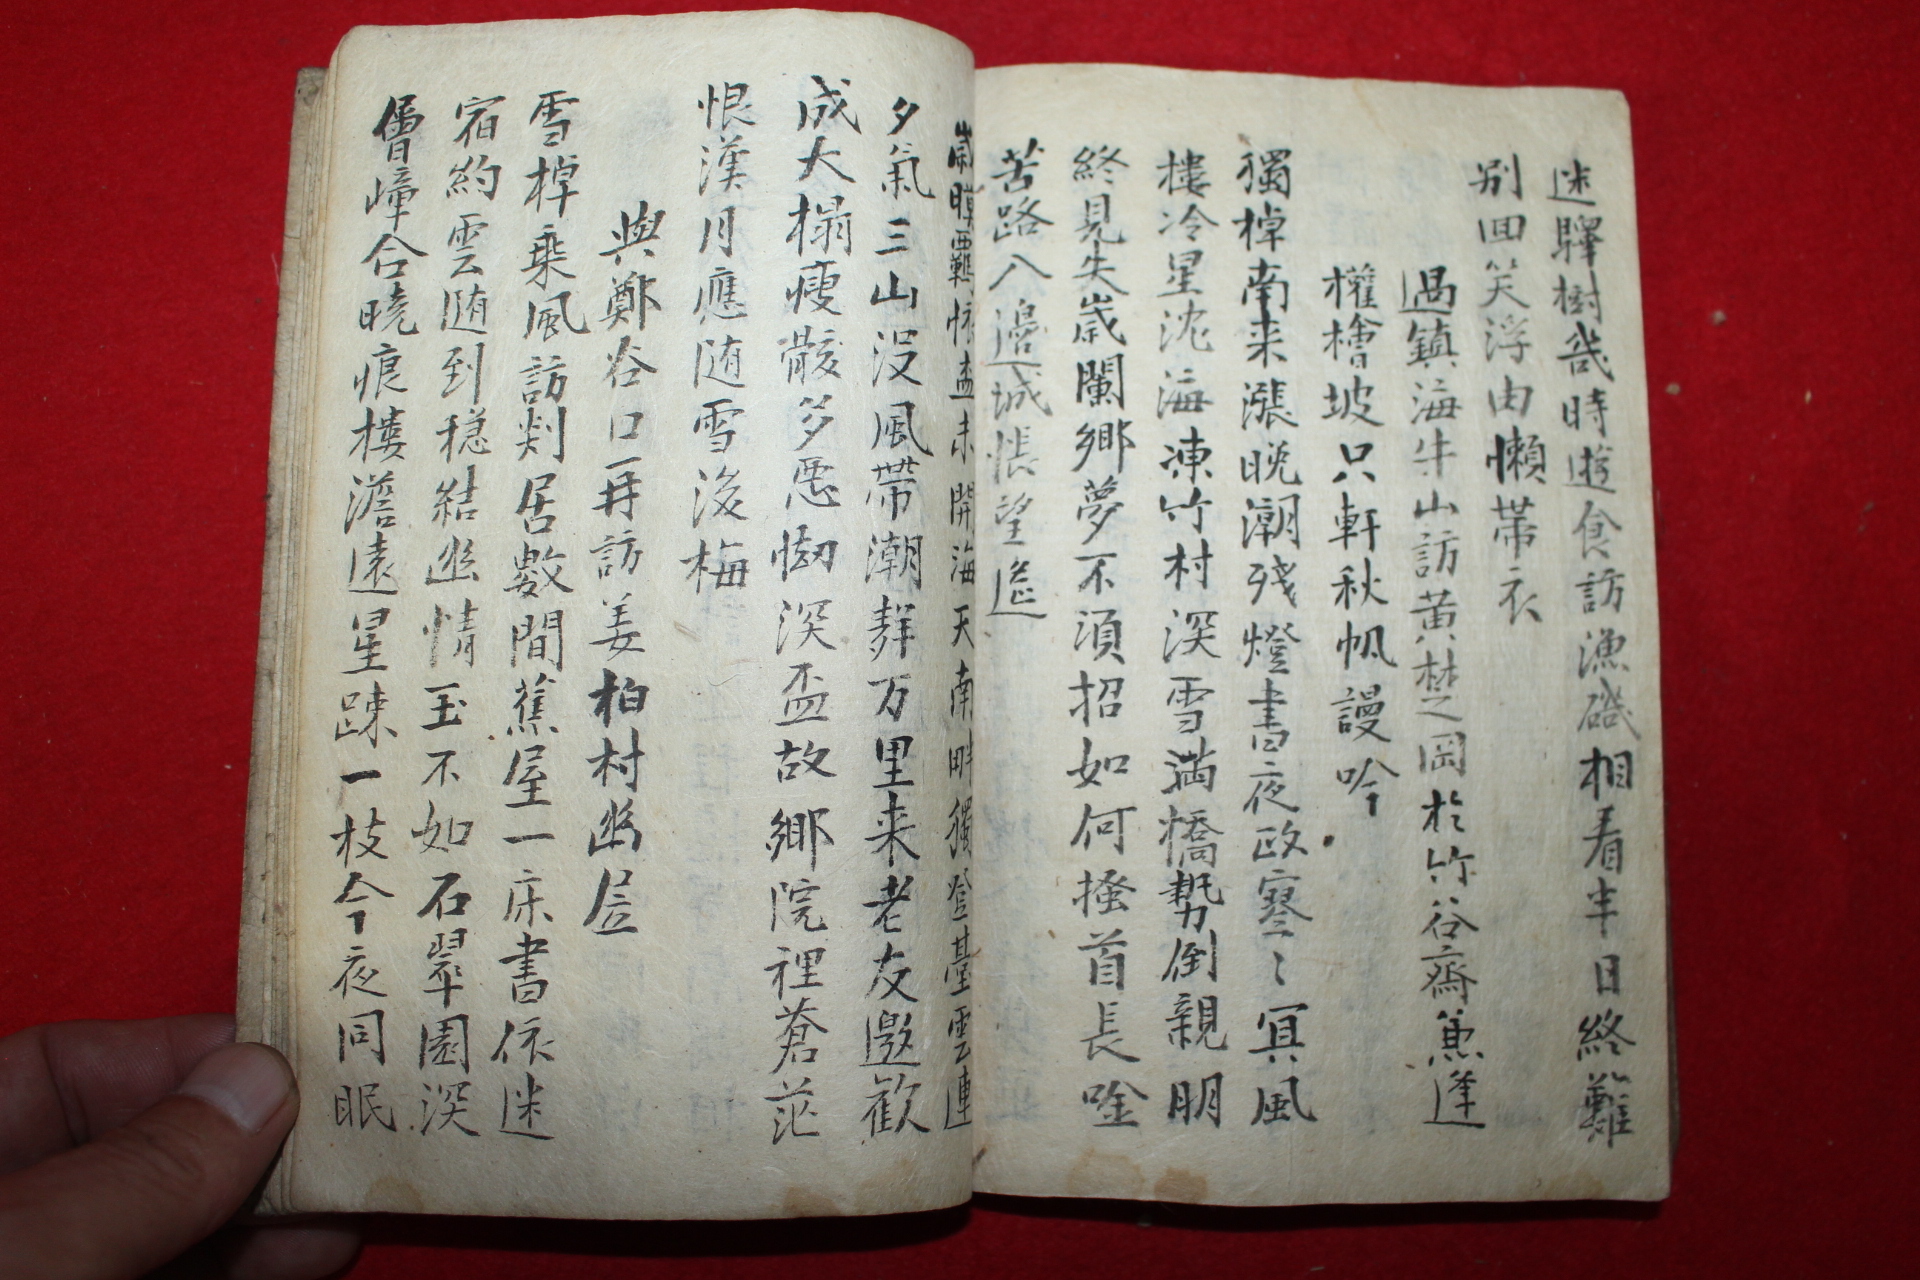 迷驛樹幾時遊食訪漁磯相看半日終難
別回笑浮由懶帶衣
過鎮海牛山訪黃楚岡於竹谷齋兼逢
權檜坡只軒秋帆謾吟
獨棹南来漲晚潮殘燈書夜政寥〻冥風
樓冷星沈海凍竹村深雪滿橋勢倒親朋
終見失歲闌鄉夢不須招如何搔首長唫
苦路入邊城悵望遙
歲暮難依盃未開海天南畔獨登臺雲連
夕氣三山沒風帶潮聲万里来老友邀歡
成大榻瘦骸多恶㤼深盃故鄉院裡蒼茫
恨漢月應随雪後梅
與鄭谷口再訪姜柏村幽居
雪棹乘風訪剡居數間蕉屋一床書依迷
宿約雲随到穩結幽情玉不如石翠園深
層嶂合曉痕樓澹遠星踈一枝今夜同眠